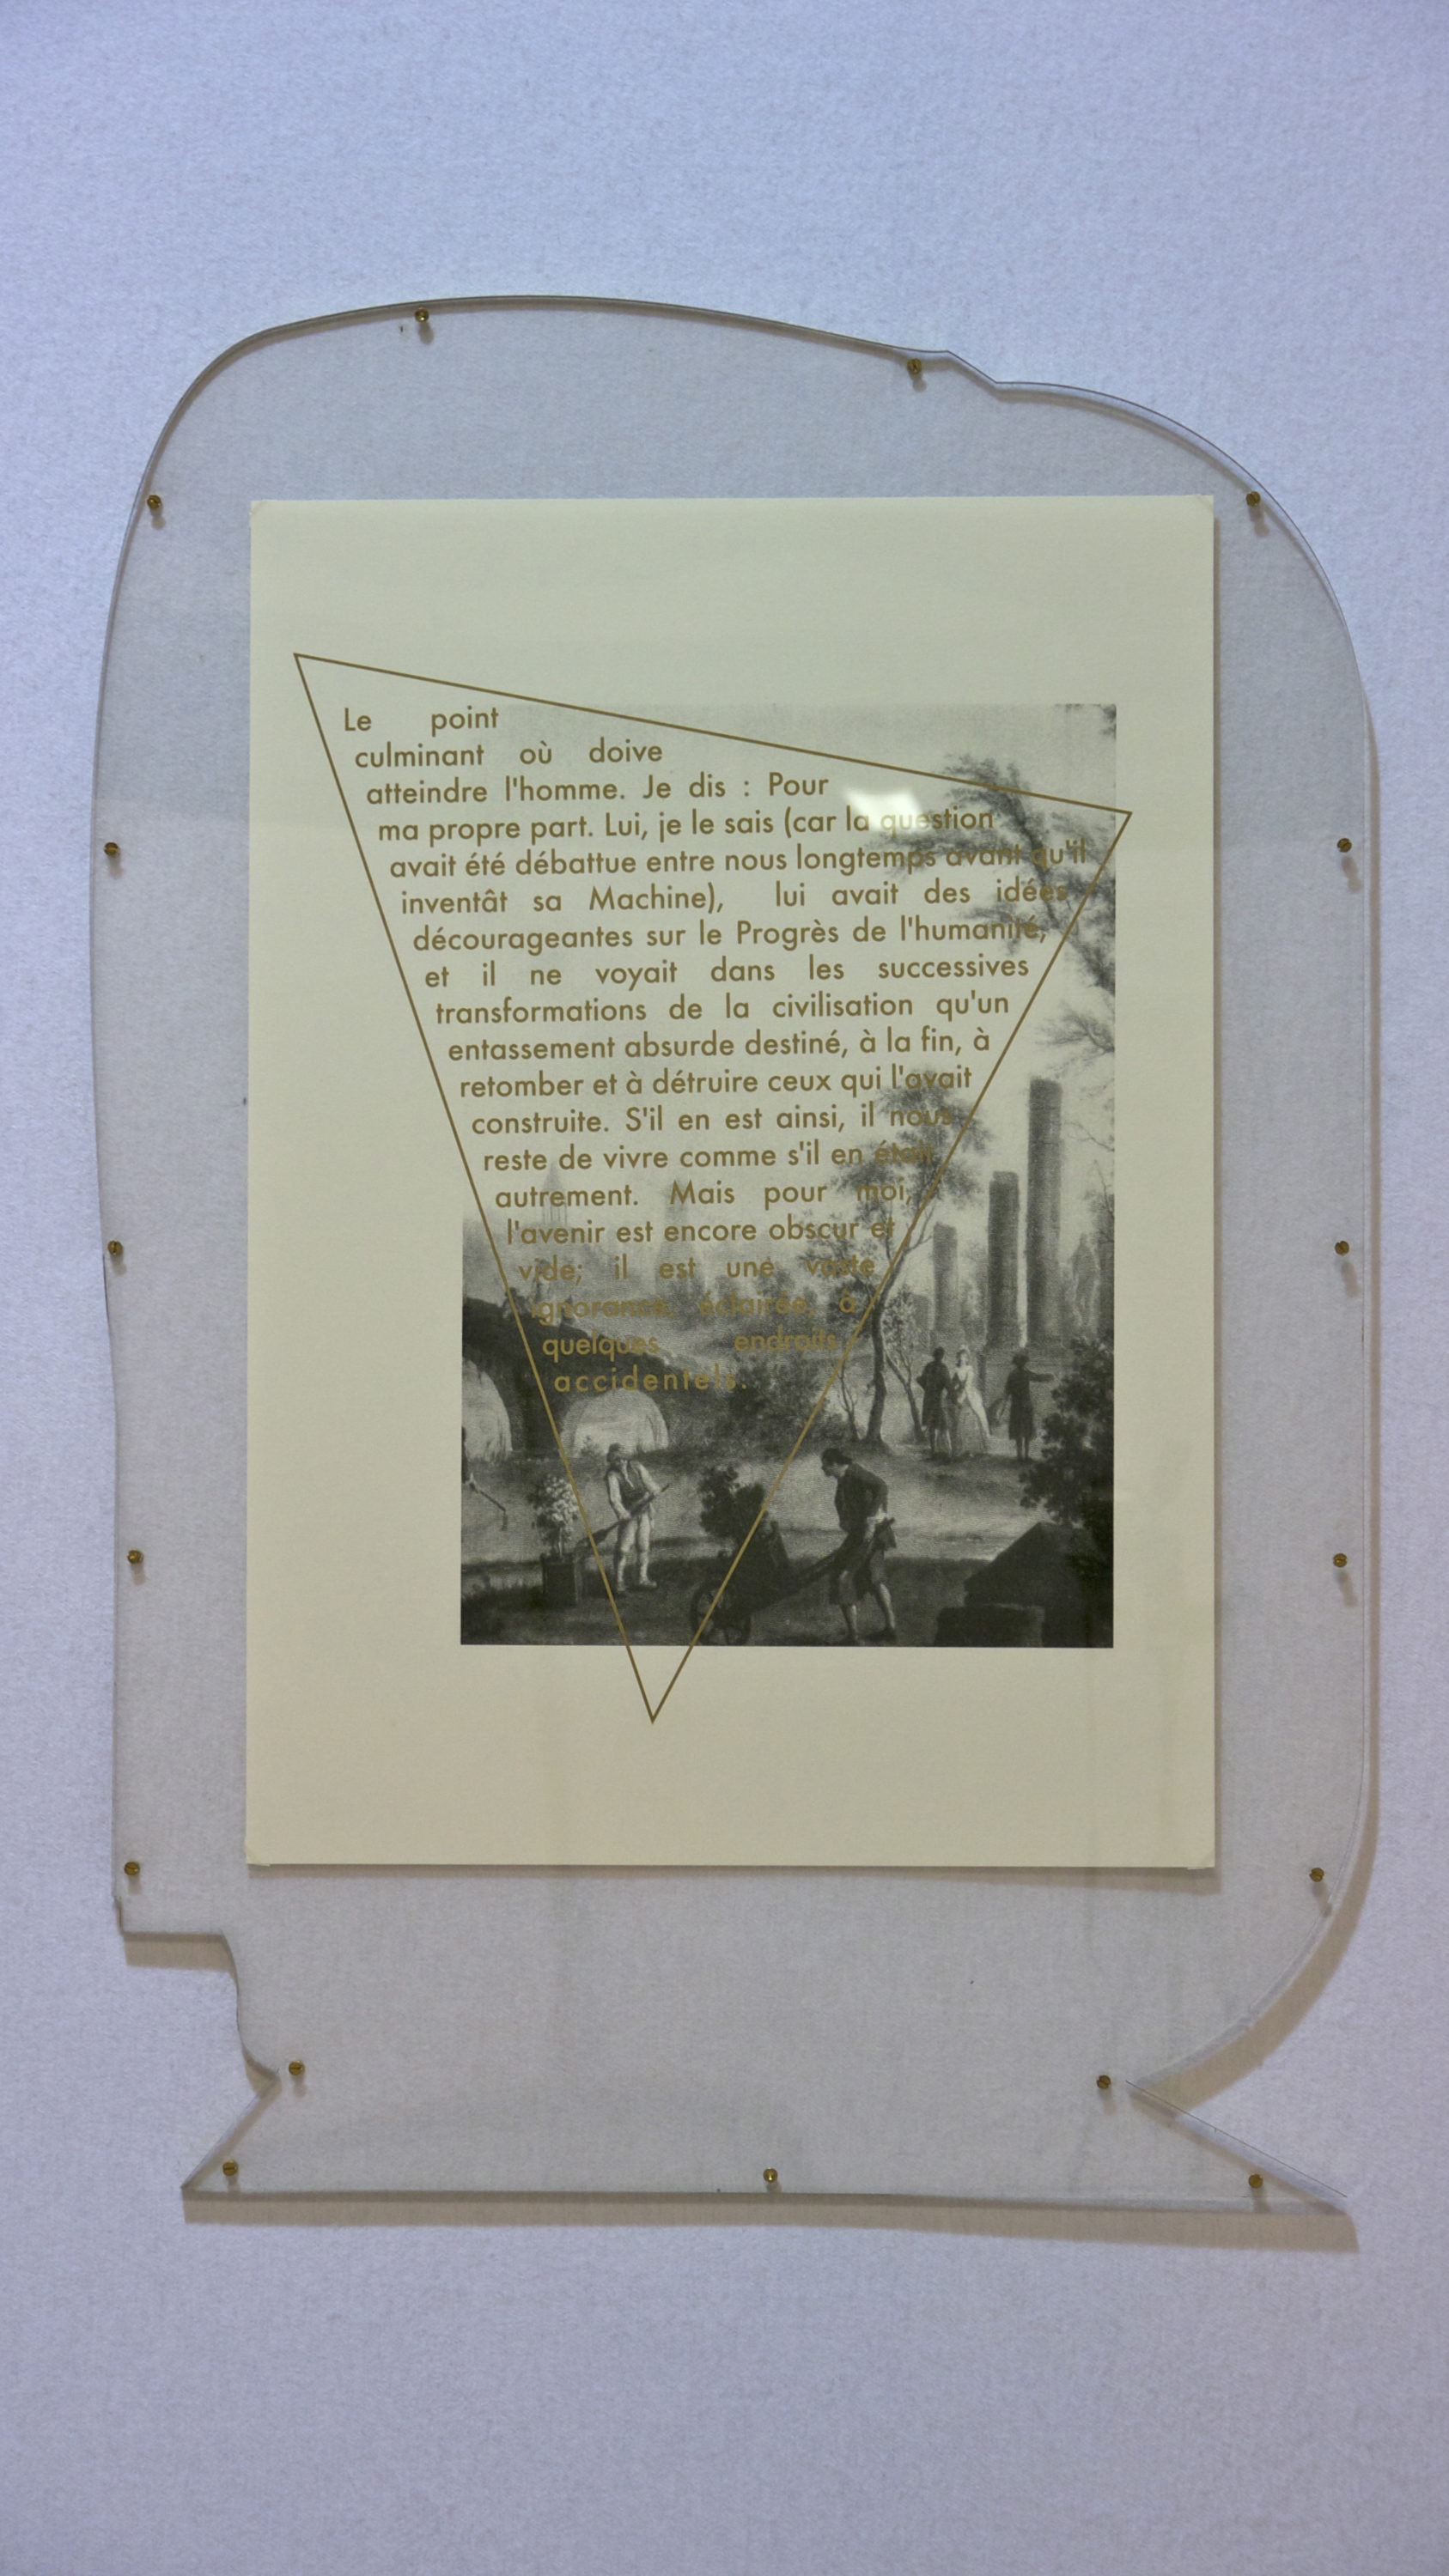 Le point
culminant où doive
atteindre l'homme. Je dis : Pour
ma propre part. Lui, je le sais (car la question
avait été débattue entre nous longtemps avant qu'il
inventât sa Machine), lui avait des idées
décourageantes sur le Progrès de l'humanité,
et il ne voyait dans les successives
transformations de la civilisation qu'un
entassement absurde destiné, à la fin, à
retomber et à détruire ceux qui l'avait
construite. S'il en est ainsi, il nous
reste de vivre comme s'il en était
autrement. Mais pour moi,
l'avenir est encore obscur et
vide; il est une vaste
ignorance, éclairée, à
quelques endroits
accidentels.